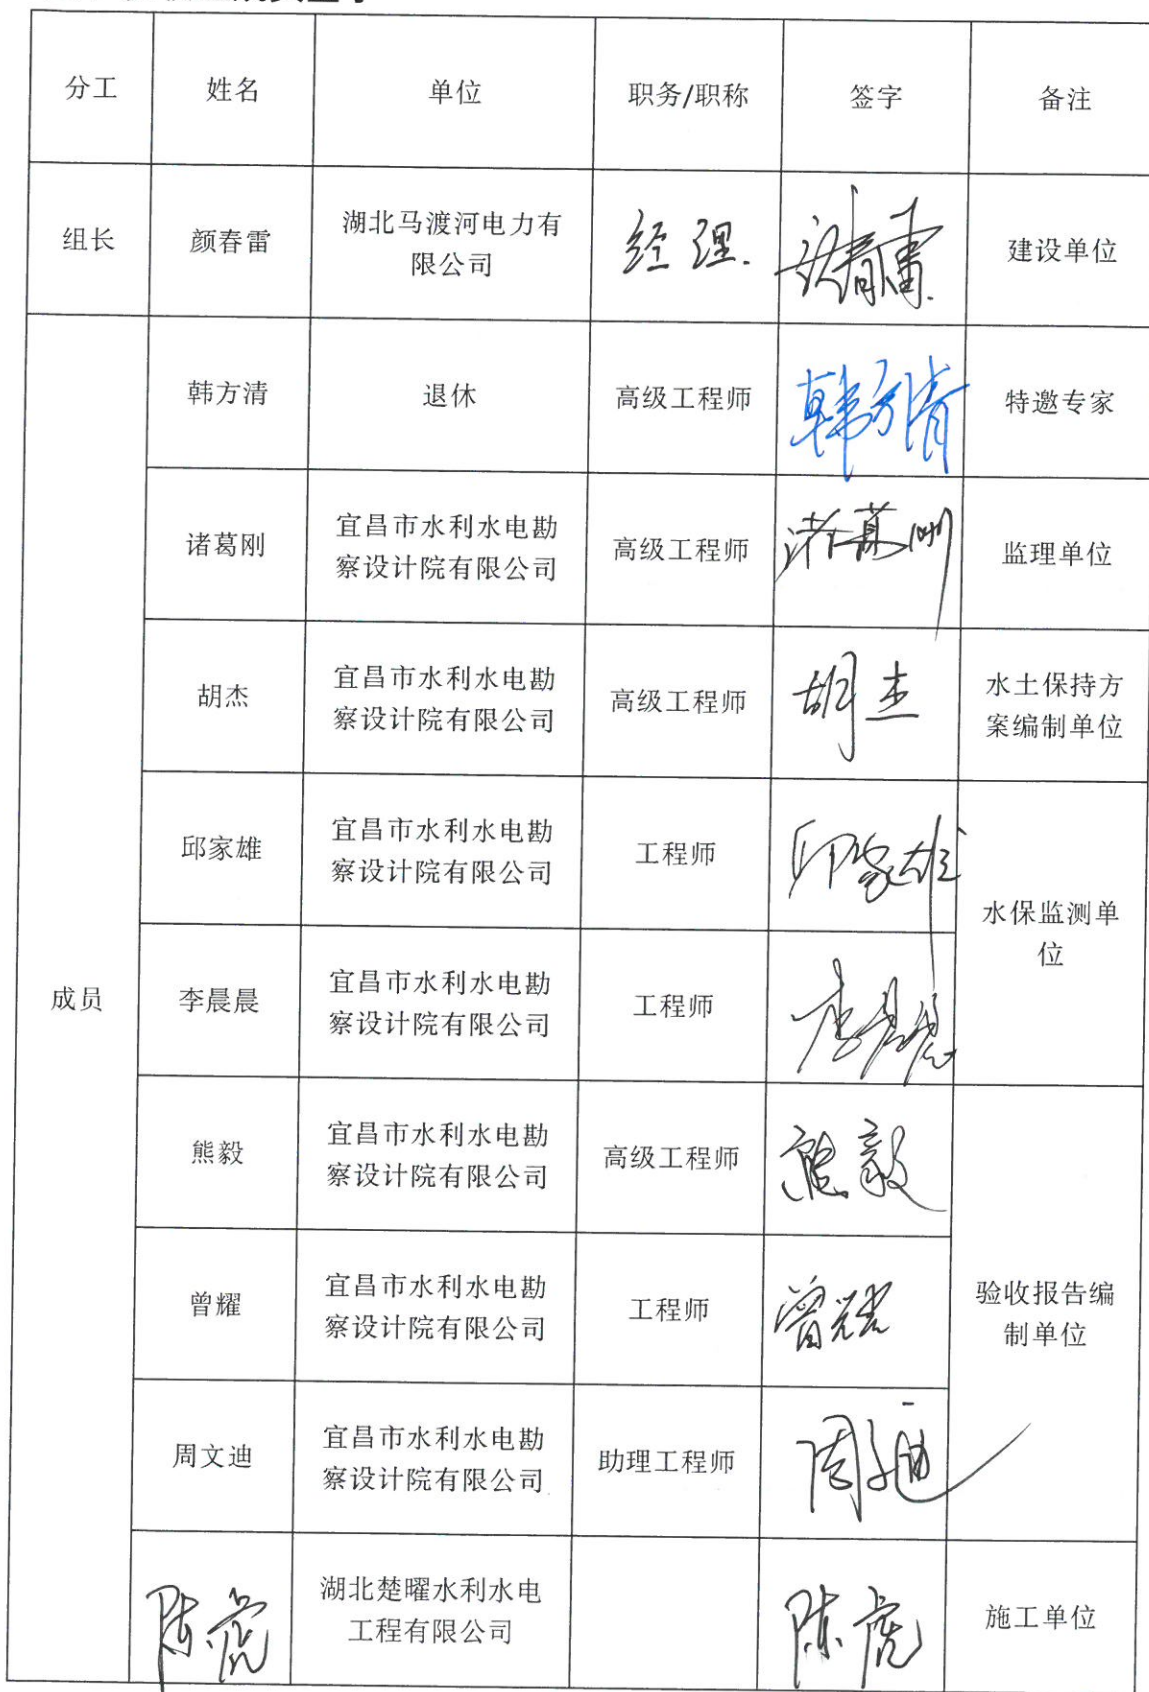 分工 姓名 单位 职务/职称 签字 备注
组长 颜春雷 湖北马渡河电力有
限公司 经理. 颜春雷 建设单位
成员
韩方清 退休 高级工程师 韩方清 特邀专家
诸葛刚 宜昌市水利水电勘
察设计院有限公司 高级工程师 诸葛刚 监理单位
胡杰 宜昌市水利水电勘
察设计院有限公司 高级工程师 胡杰 水土保持方
案编制单位
邱家雄 宜昌市水利水电勘
察设计院有限公司 工程师 邱家雄 水保监测单
位
李晨晨 宜昌市水利水电勘
察设计院有限公司 工程师 李晨晨
熊毅 宜昌市水利水电勘
察设计院有限公司 高级工程师 熊毅 验收报告编
制单位
曾耀 宜昌市水利水电勘
察设计院有限公司 工程师 曾耀
周文迪 宜昌市水利水电勘
察设计院有限公司 助理工程师 周文迪
陈虎 湖北楚曜水利水电
工程有限公司 陈虎 施工单位